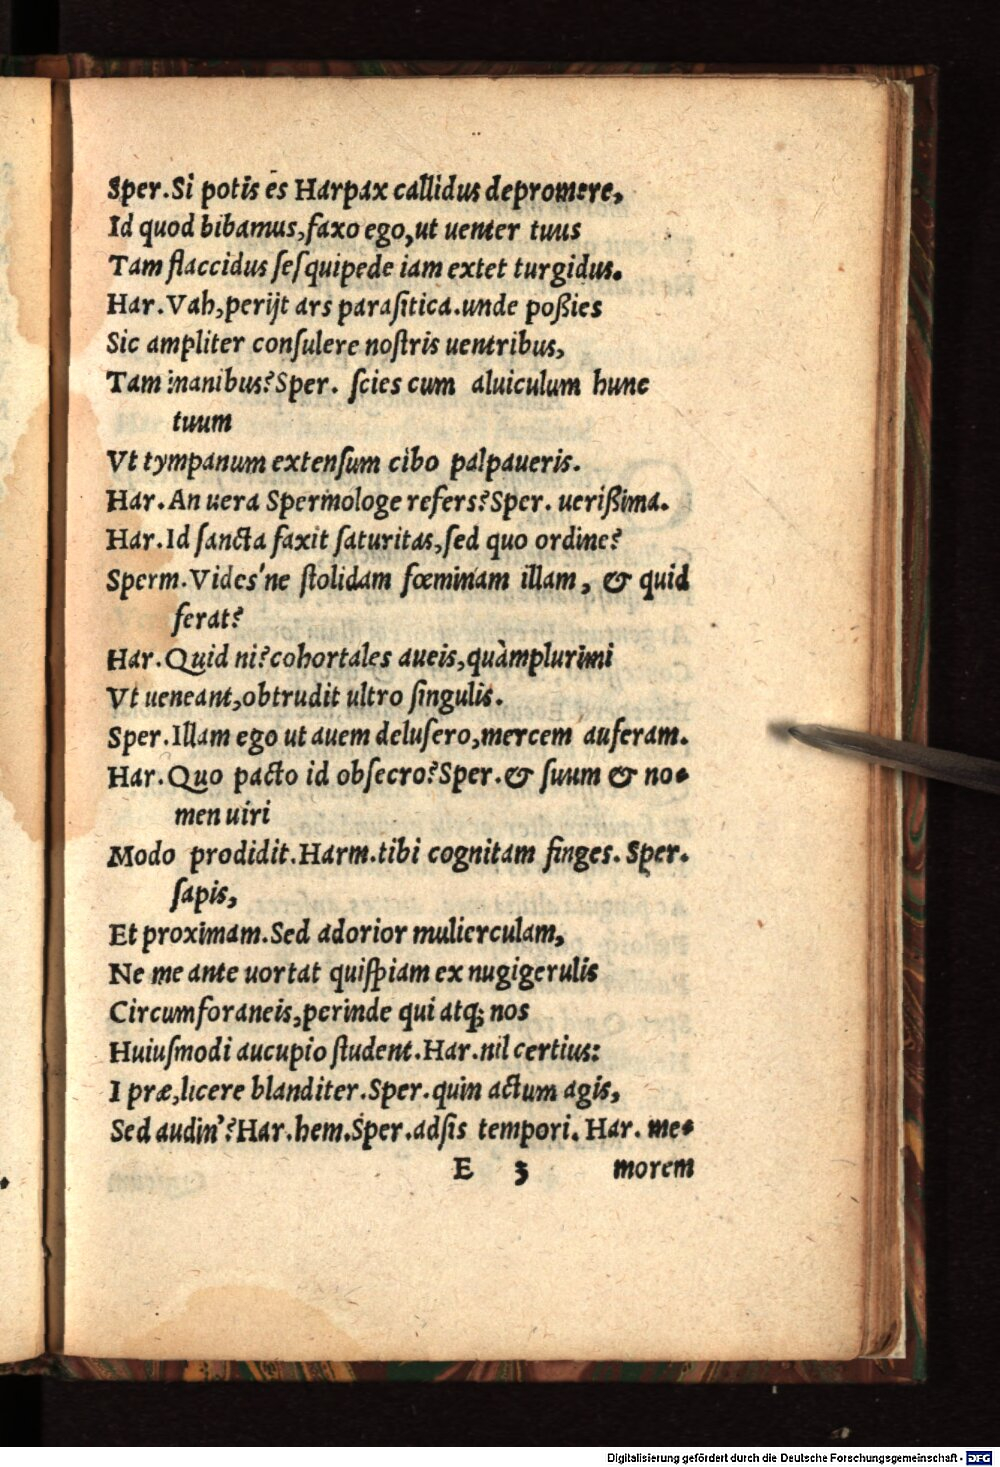 Sper. Si potis es Harpax callidus depromere,
Id quod bibamus, faxo ego, ut uenter tuus
Tam flaccidus sesquipede iam extet turgidus.
Har. Vah, perijt ars parasitica. unde poßies
Sic ampliter consulere nostris uentribus,
Tam inanibus? Sper. scies cum aluiculum hunc
tuum
Vt tympanum extensum cibo palpaueris.
Har. An uera Spermologe refers? Sper. uerißima.
Har. Id sancta faxit saturitas, sed quo ordine?
Sperm. Vides'ne stolidam fœminam illam, & quid
ferat?
Har. Quid ni? cohortales aueis, quàmplurimi
Vt ueneant, obtrudit ultro singulis.
Sper. Illam ego ut auem delusero, mercem auferam.
Har. Quo pacto id obsecro? Sper. & suum & no-
men uiri
Modo prodidit. Harm. tibi cognitam finges. Sper.
sapis,
Et proximam. Sed adorior mulierculam,
Ne me ante uortat quispiam ex nugigerulis
Circumforaneis, perinde qui atq; nos
Huiusmodi aucupio student. Har. nil certius:
I præ, licere blanditer. Sper. quin actum agis,
Sed audin'? Har. hem. Sper. adsis tempori. Har. me-
E 3 morem
Digitalisierung gefördert durch die Deutsche Forschungsgemeinschaft - DFG